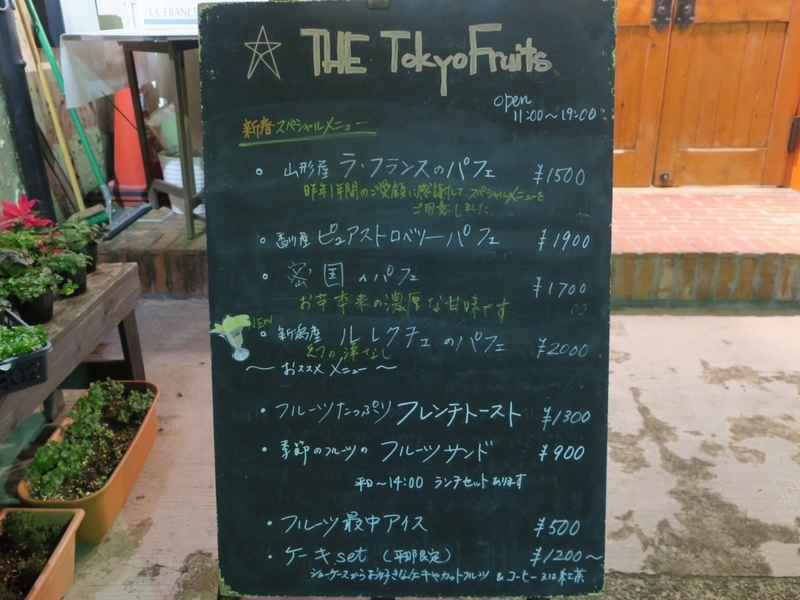 LA-FRANCE
THE TokyoFruits
open
11:00〜19:00
新春スペシャルメニュー
山形産 ラ・フランスのパフェ ¥1500
昨年1年間のご愛顧に感謝して、スペシャルメニューを
ご用意しました
香川産 ピュアストロベリーパフェ ¥1900
蜜国のパフェ ¥1700
お芋本来の濃厚な甘味です
NEW
新潟産 ル レクチェのパフェ ¥2000
幻の洋なし
〜おススメメニュー〜
・フルーツたっぷり フレンチトースト ¥1300
・季節のフルーツの フルーツサンド ¥900
平日〜14:00 ランチセットあります
・フルーツ最中アイス ¥500
・ケーキset (平日限定) ¥1200〜
ショーケースからお好きなケーキやカットフルーツ & コーヒー又は紅茶